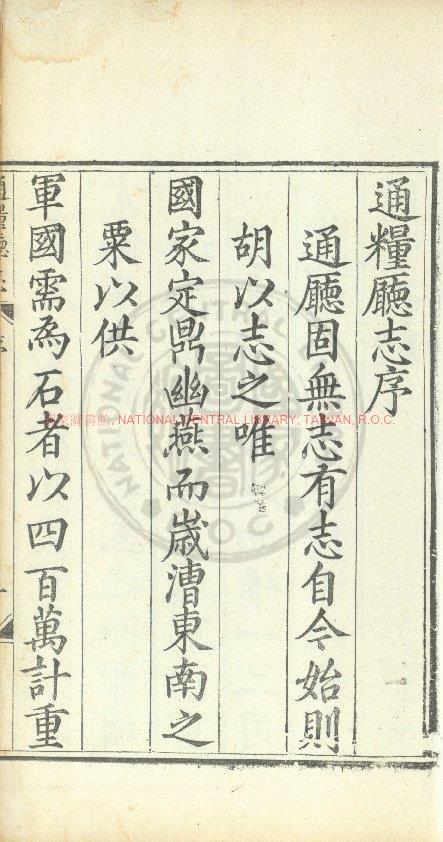 通糧廳志序
通廳固無志有志自今始則
胡以志之唯
國家定鼎幽燕而歲漕東南之
粟以供
軍國需為石者以四百萬計重
國家圖書館, NATIONAL CENTRAL LIBRARY, TAIWAN, R.O.C